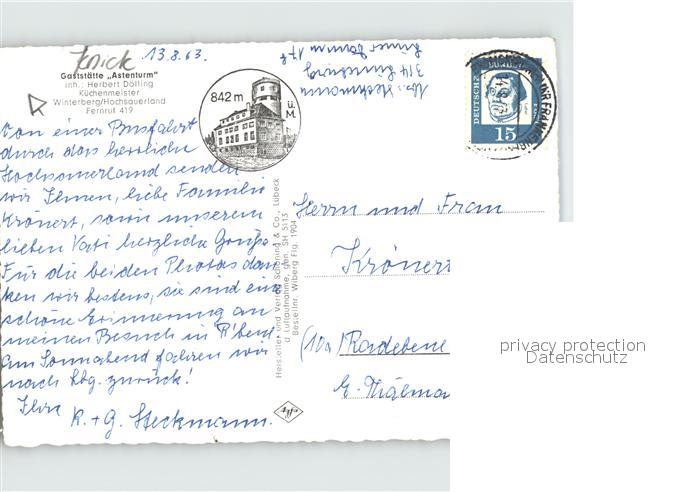 Knick
13.8.63.
Gaststätte „Astenturm"
Inh.: Herbert Dölling
Küchenmeister
Winterberg/Hochsauerland
Fernruf 419
842 m
ü. M.
Von einer Busfahrt
durch das herrliche
Hochsauerland senden
wir Ihnen, liebe Familie
Krönert, sowie unserem
lieben Vati herzliche Grüße.
Für die beiden Photos dan
ken wir bestens, sie sind eine
schöne Erinnerung an
meinen Besuch in R'beul
Am Sonnabend fahren wir
nach Lbg. zurück!
Ihre
R. + G. Steckmann.
Hersteller und Verlag Schöning & Co., Lübeck
Luftaufnahme, gen. SH 5113
Bestellnr. Wiberg Fig. 1904
Abs: Steckmann
314 Lüneburg
DEUTSCHE BUNDESPOST
15
Herrn und Frau
Krönert
(10a) Radebeu
E. Thälma
privacy protection
Datenschutz